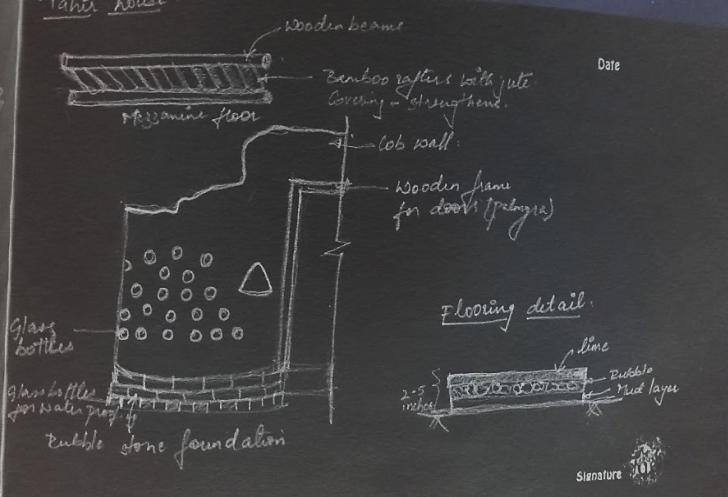 Tahir house
wooden beams
Date
Bamboo rafters with jute
Covering - strengthens.
Mezzanine floor
Cob wall.
Wooden frame
for doors (palmyra)
Flooring detail.
Glass
bottles
lime
Rubble
Mud layer
2-5
inches
Glass bottles
for waterproofing
Rubble stone foundation
Signature